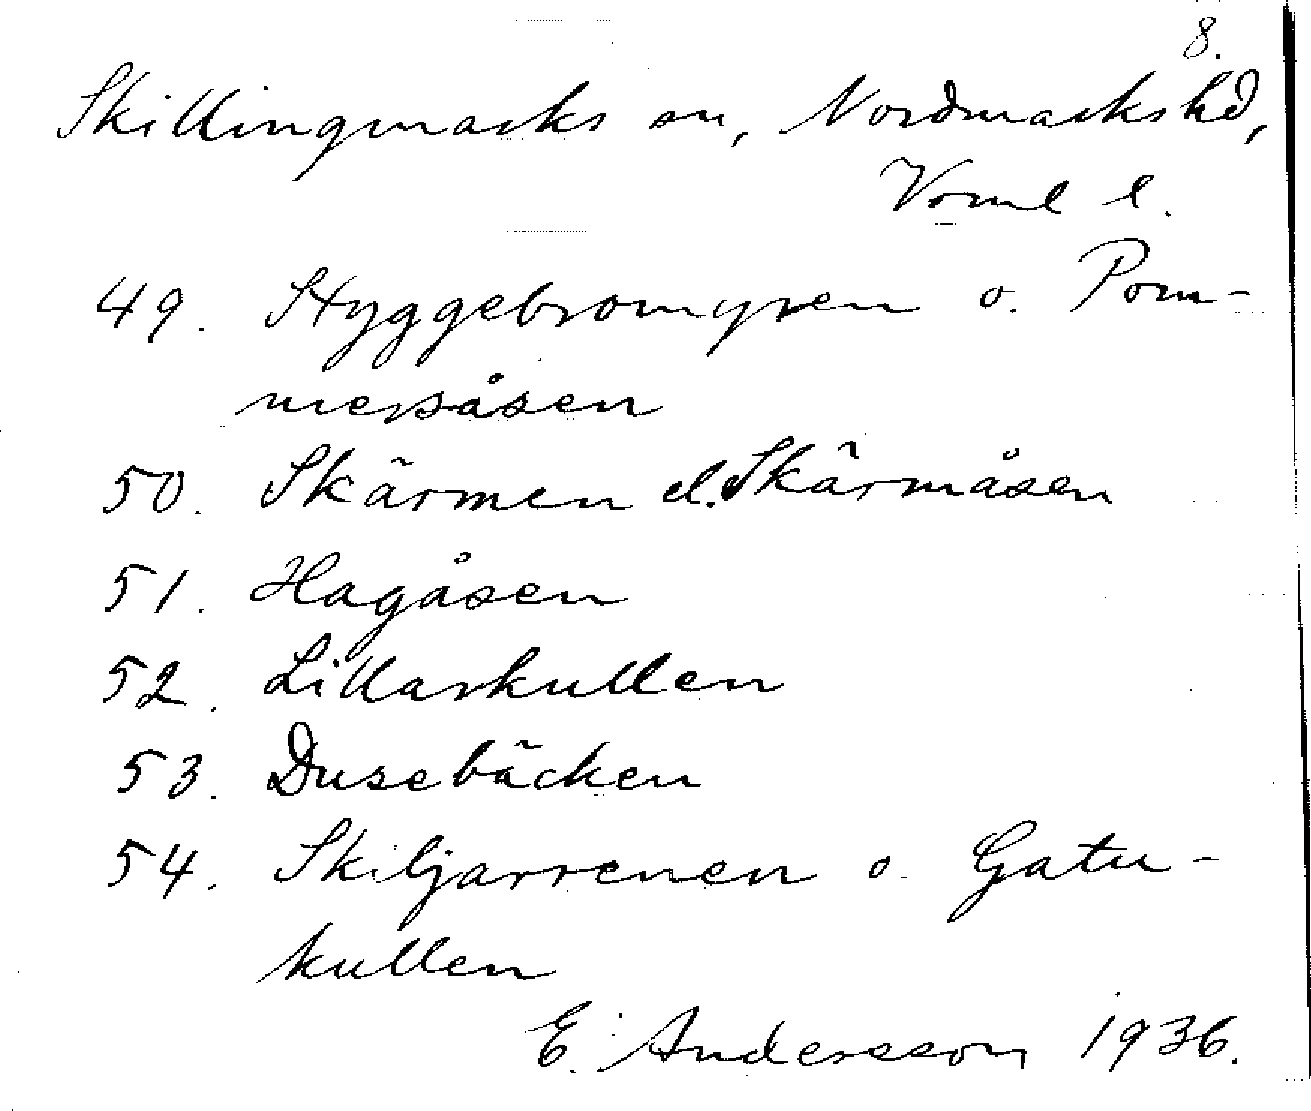 8.
Skillingmarks sn, Nordmarks hd,
Vrml l.
49. Styggebromyren o. Pom-
mersåsen
50. Skärmen el. Skärmåsen
51. Hagåsen
52. Lillarkullen
53. Dusebäcken
54. Skiljarrenen o. Gatu-
kullen
E. Andersson 1936.